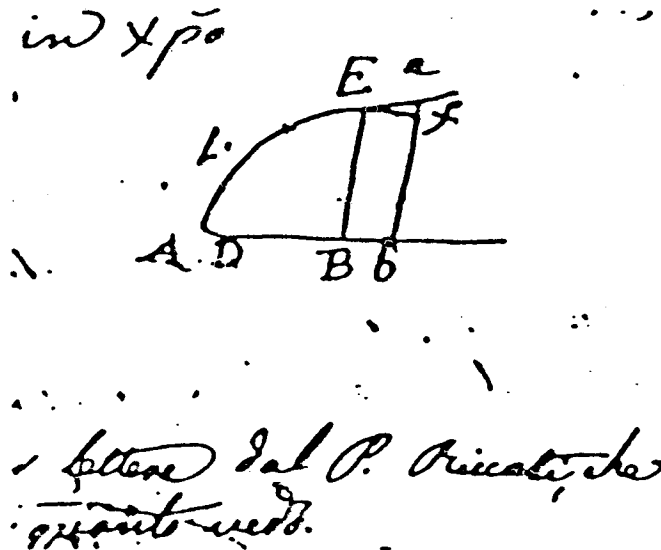 in Xp̄o
E a
L. f
A D B b
lettere dal P. Riccati, che
quanto vedo.